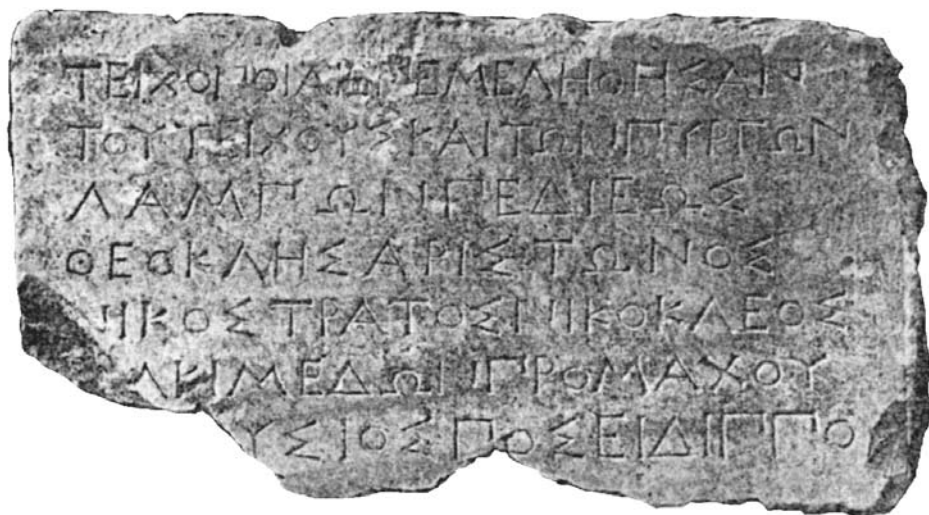 ΤΕΙΧΟΠΟΙΑΙΕΠΕΜΕΛΗΘΗΣΑΝ
ΤΟΥΤΕΙΧΟΥΣΚΑΙΤΩΝΠΥΡΓΩΝ
ΛΑΜΠΩΝΠΕΔΙΕΩΣ
ΘΕΟΚΛΗΣΑΡΙΣΤΩΝΟΣ
ΝΙΚΟΣΤΡΑΤΟΣΝΙΚΟΚΛΕΟΣ
ΛΚΙΜΕΔΩΝΠΡΟΜΑΧΟΥ
ΥΣΙΟΣΠΟΣΕΙΔΙΠΠΟ